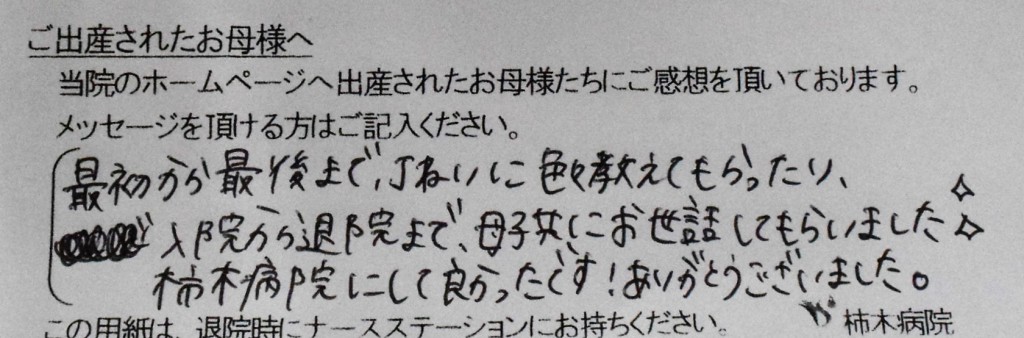 ご出産されたお母様へ
当院のホームページへ出産されたお母様たちにご感想を頂いております。
メッセージを頂ける方はご記入ください。
最初から最後まで、丁ねいに色々教えてもらったり、
入院から退院まで、母子共にお世話してもらいました
柿木病院にして良かったです!ありがとうございました。
この用紙は、退院時にナースステーションにお持ちください。
柿木病院